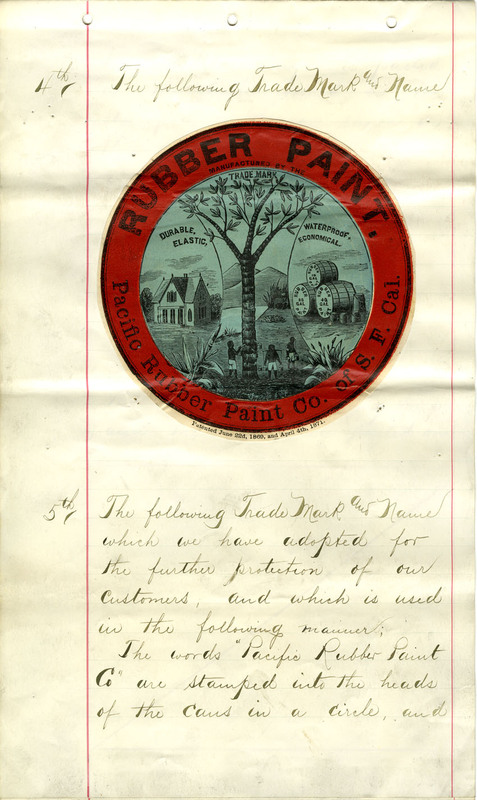 4th The following Trade Mark and Name
RUBBER PAINT.
MANUFACTURED BY THE
TRADE MARK
DURABLE,
ELASTIC,
WATERPROOF,
ECONOMICAL.
Pacific Rubber Paint Co. of S. F. Cal.
Patented June 22d, 1869, and April 4th, 1871.
5th The following Trade Mark and Name
which we have adopted for
the further protection of our
Customers, and which is used
in the following manner;
The words "Pacific Rubber Paint
Co" are stamped into the heads
of the cans in a circle, and